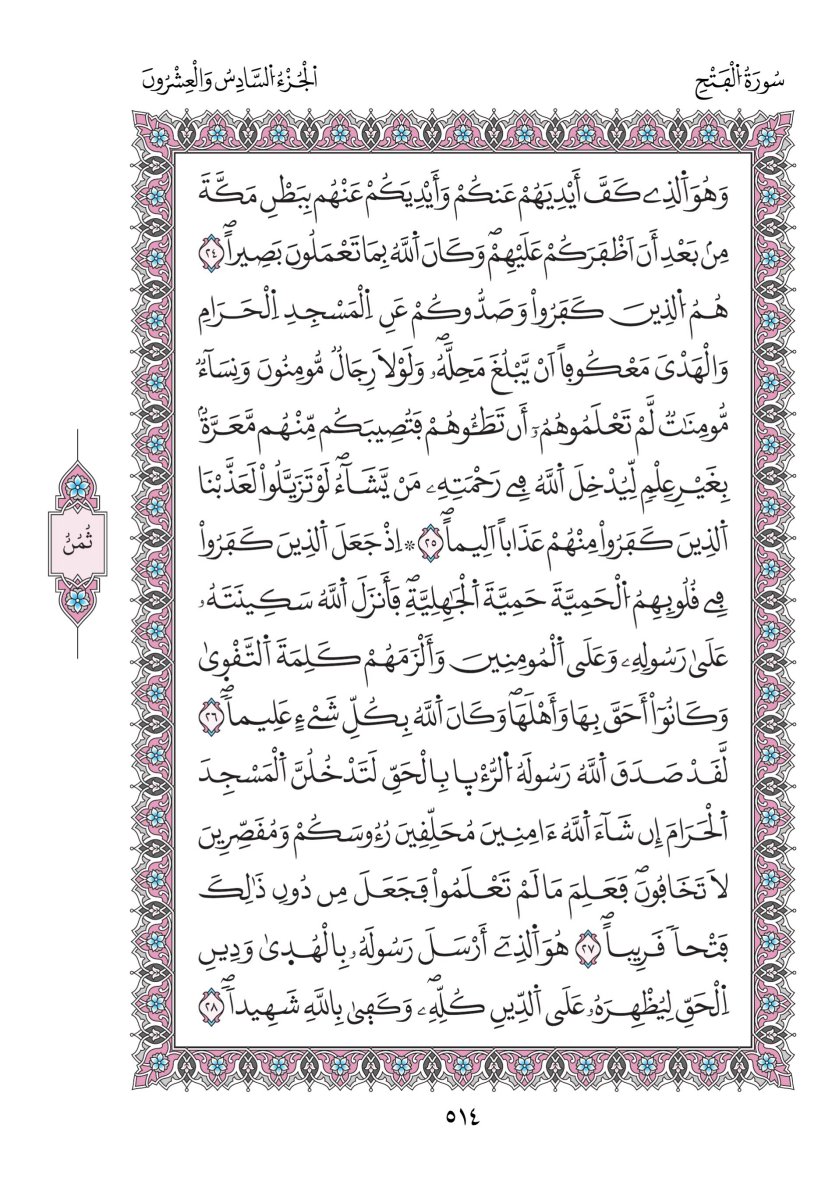 سُورَةُ اُلْفَتْحِ
اَلْجُزْءُ اُلسَّادِسُ وَالْعِشْرُونَ
وَهُوَ اَلذِے كَفَّ أَيْدِيَهُمْ عَنكُمْ وَأَيْدِيَكُمْ عَنْهُم بِبَطْنِ مَكَّةَ
مِنۢ بَعْدِ أَنَ اَظْفَرَكُمْ عَلَيْهِمْۖ وَكَانَ اَللَّهُ بِمَا تَعْمَلُونَ بَصِيراًۖ ٢٤
هُمُ اُلذِينَ كَفَرُواْ وَصَدُّوكُمْ عَنِ اِلْمَسْجِدِ اِلْحَرَامِ
وَالْهَدْيَ مَعْكُوفاً اَنْ يَّبْلُغَ مَحِلَّهُۥۖ وَلَوْلَا رِجَالٌ مُّومِنُونَ وَنِسَآءٌ
مُّومِنَٰتٌ لَّمْ تَعْلَمُوهُمُۥٓ أَن تَطَـُٔوهُمْ فَتُصِيبَكُم مِّنْهُم مَّعَرَّةُۢ
بِغَيْرِ عِلْمٍ لِّيُدْخِلَ اَللَّهُ فِے رَحْمَتِهِۦ مَنْ يَّشَآءُۖ لَوْ تَزَيَّلُواْ لَعَذَّبْنَا
اَلذِينَ كَفَرُواْ مِنْهُمْ عَذَاباً اَلِيماًۖ ٢٥ * اِذْ جَعَلَ اَلذِينَ كَفَرُواْ
فِے قُلُوبِهِمُ اُلْحَمِيَّةَ حَمِيَّةَ اَلْجَٰهِلِيَّةِۖ فَأَنزَلَ اَللَّهُ سَكِينَتَهُۥ
عَلَىٰ رَسُولِهِۦ وَعَلَى اَلْمُومِنِينَ وَأَلْزَمَهُمْ كَلِمَةَ اَلتَّقْوٜىٰ
وَكَانُوٓاْ أَحَقَّ بِهَا وَأَهْلَهَاۖ وَكَانَ اَللَّهُ بِكُلِّ شَےْءٍ عَلِيماًۖ ٢٦
لَّقَدْ صَدَقَ اَللَّهُ رَسُولَهُ اُلرُّءْيٜا بِالْحَقِّ لَتَدْخُلُنَّ اَلْمَسْجِدَ
اَلْحَرَامَ إِن شَآءَ اَللَّهُ ءَامِنِينَ مُحَلِّقِينَ رُءُوسَكُمْ وَمُقَصِّرِينَ
لَا تَخَافُونَۖ فَعَلِمَ مَا لَمْ تَعْلَمُواْ فَجَعَلَ مِن دُونِ ذَٰلِكَ
فَتْحاً قَرِيباًۖ ٢٧ هُوَ اَلذِےٓ أَرْسَلَ رَسُولَهُۥ بِالْهُدٜىٰ وَدِينِ
اِلْحَقِّ لِيُظْهِرَهُۥ عَلَى اَلدِّينِ كُلِّهِۦۖ وَكَفٜىٰ بِاللَّهِ شَهِيداًۖ ٢٨
ثُمُنُ
٥١٤